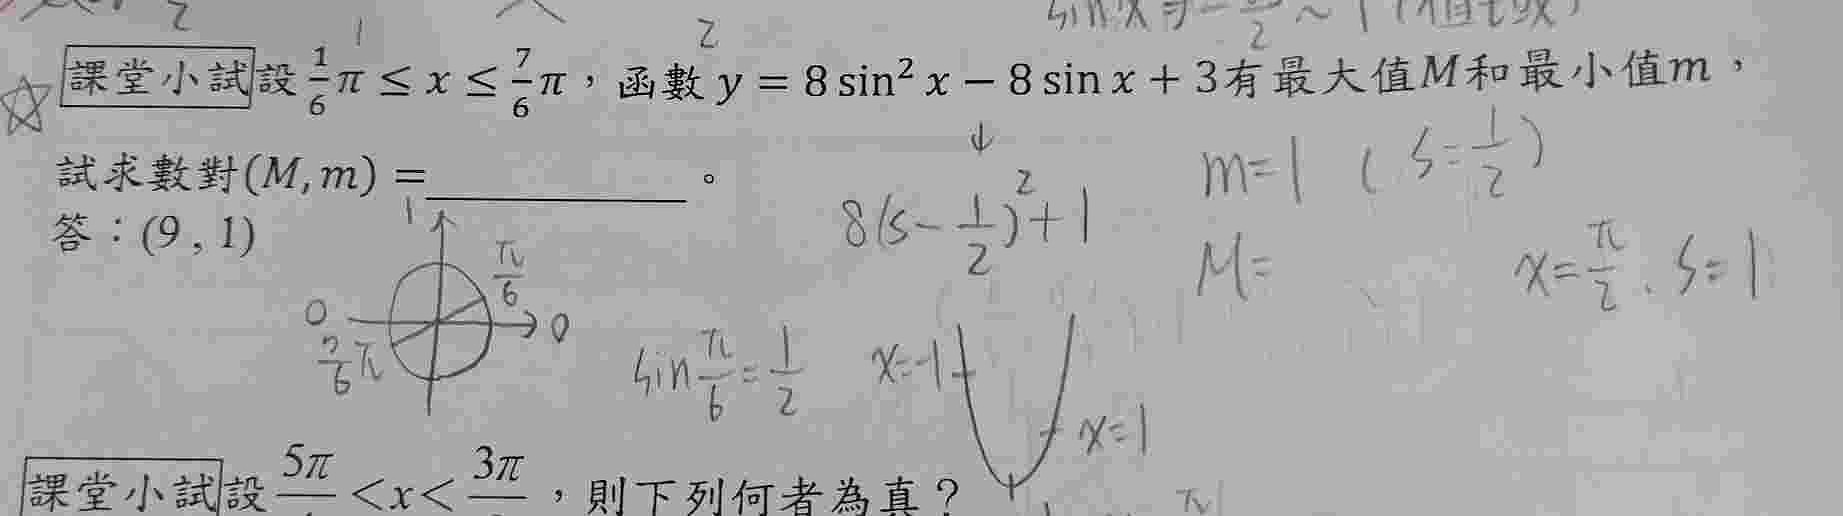 sin x
2
1
2
課堂小試 設 1/6 π ≤ x ≤ 7/6 π，函數 y = 8 sin² x − 8 sin x + 3有最大值M和最小值m，
試求數對(M, m) =____________。
答：(9 , 1)
↓
8(s-1/2)²+1
m=1 (s=1/2)
M=
x=π/2 . s=1
1
π/6
0
0
7/6 π
sin π/6 = 1/2
x=-1
x=1
課堂小試 設 5π < x < 3π ，則下列何者為真？